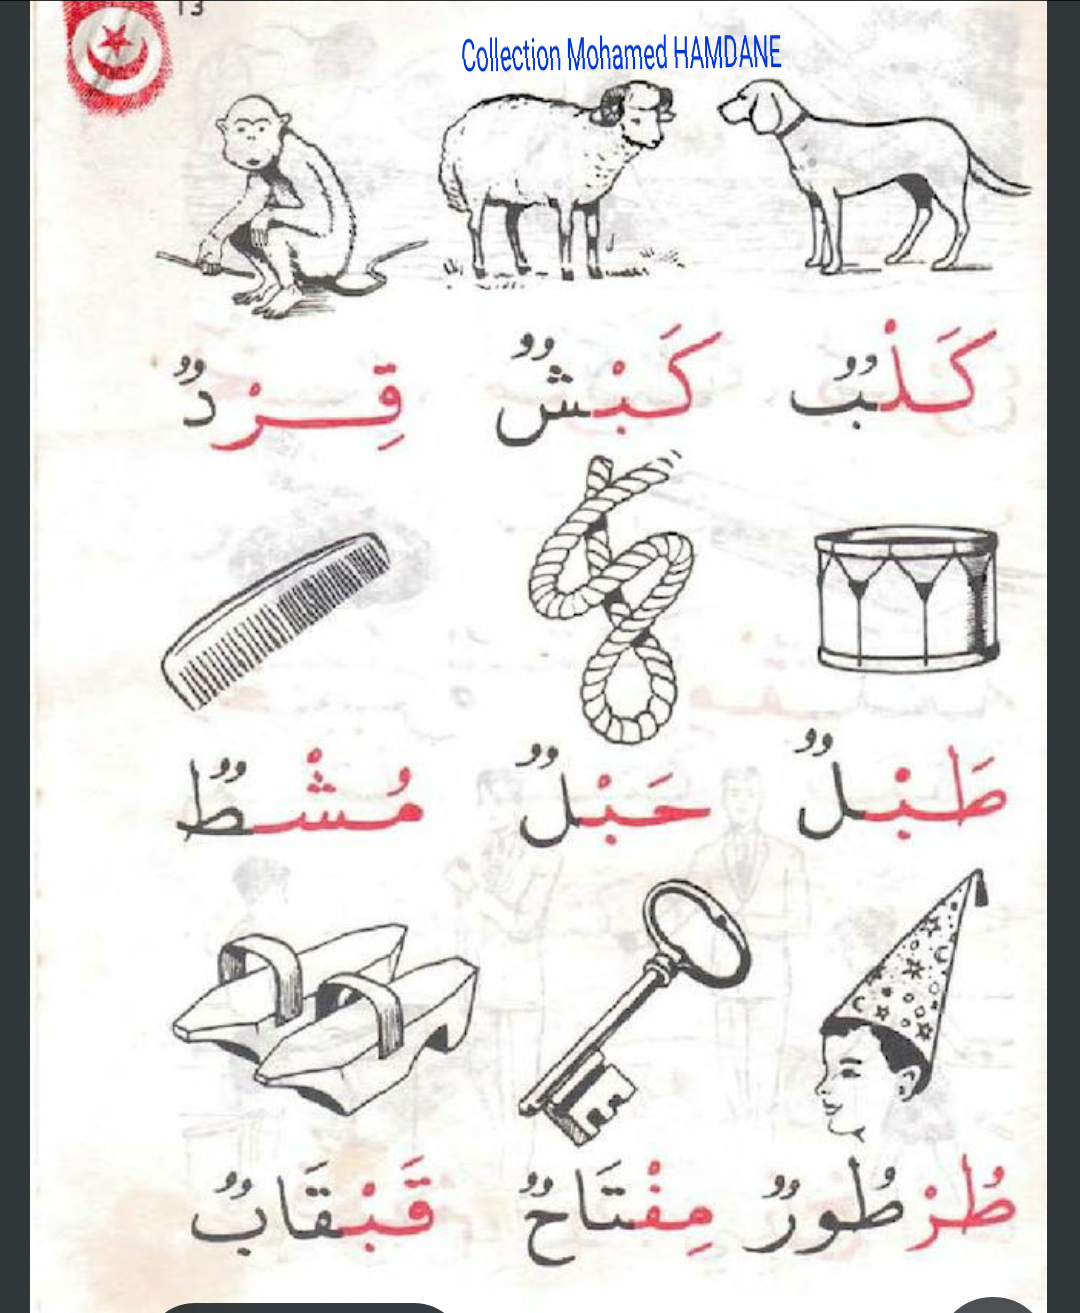 13
Collection Mohamed HAMDANE
كَلْبٌ كَبْشٌ قِرْدٌ
طَبْلٌ حَبْلٌ مُشْطٌ
طُرْطُورٌ مِفْتَاحٌ قَبْقَابٌ